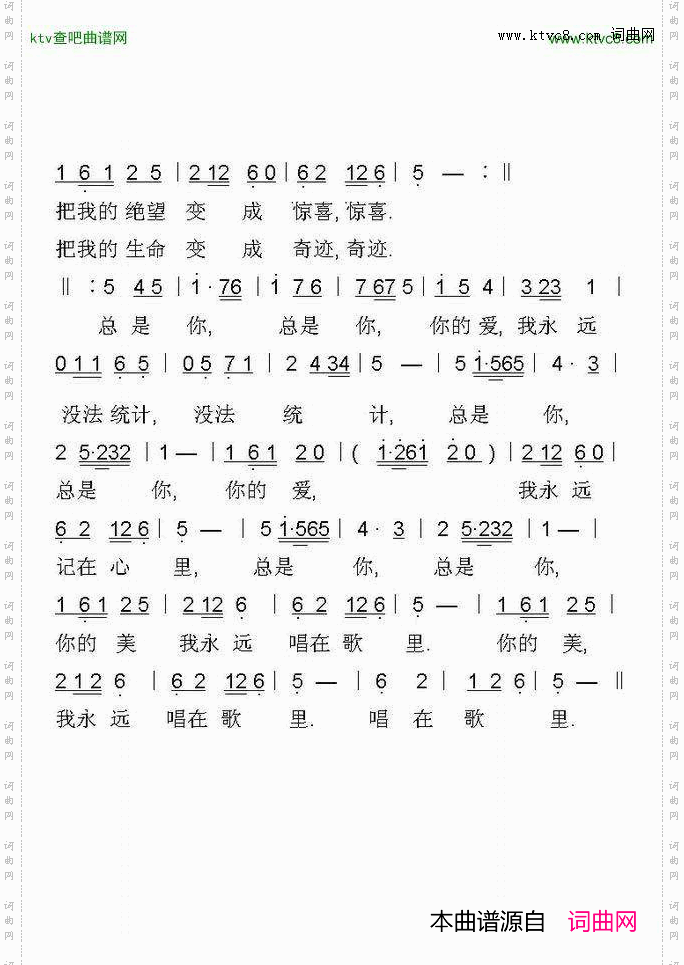 ktv查吧曲谱网
www.ktvc8.com 词曲网
www.ktvc8.com
1 6 1 2 5 | 2 12 6 0 | 6 2 12 6 | 5 — :‖
把我的 绝望 变 成 惊喜, 惊喜.
把我的 生命 变 成 奇迹, 奇迹.
‖: 5 4 5 | 1· 76 | 1 7 6 | 7 67 5 | 1 5 4 | 3 23 1 |
总 是 你, 总 是 你, 你的 爱, 我永 远
0 1 1 6 5 | 0 5 7 1 | 2 4 34 | 5 — | 5 1·565 | 4· 3 |
没法 统计, 没法 统 计, 总是 你,
2 5·232 | 1 — | 1 6 1 2 0 | ( 1·261 2 0 ) | 2 12 6 0 |
总是 你, 你的 爱, 我永 远
6 2 12 6 | 5 — | 5 1·565 | 4· 3 | 2 5·232 | 1 — |
记在 心 里, 总是 你, 总是 你,
1 6 1 2 5 | 2 12 6 | 6 2 12 6 | 5 — | 1 6 1 2 5 |
你的 美 我永 远 唱在 歌 里. 你的 美,
2 1 2 6 | 6 2 12 6 | 5 — | 6 2 | 1 2 6 | 5 — ‖
我永 远 唱在 歌 里. 唱 在 歌 里.
本曲谱源自 词曲网